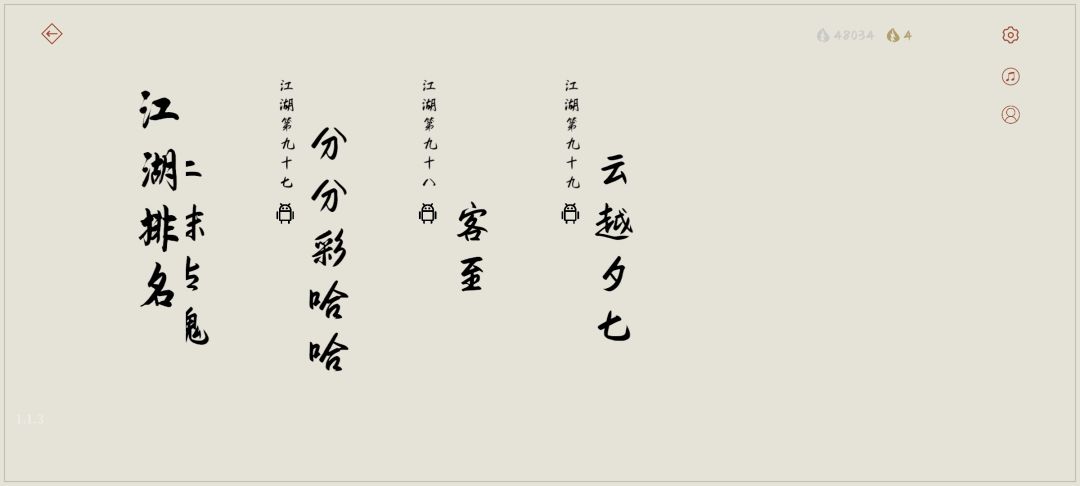 48034
4
江湖排名
二末占鬼
江湖第九十七
分分彩哈哈
江湖第九十八
客至
江湖第九十九
云越夕七
1.1.3